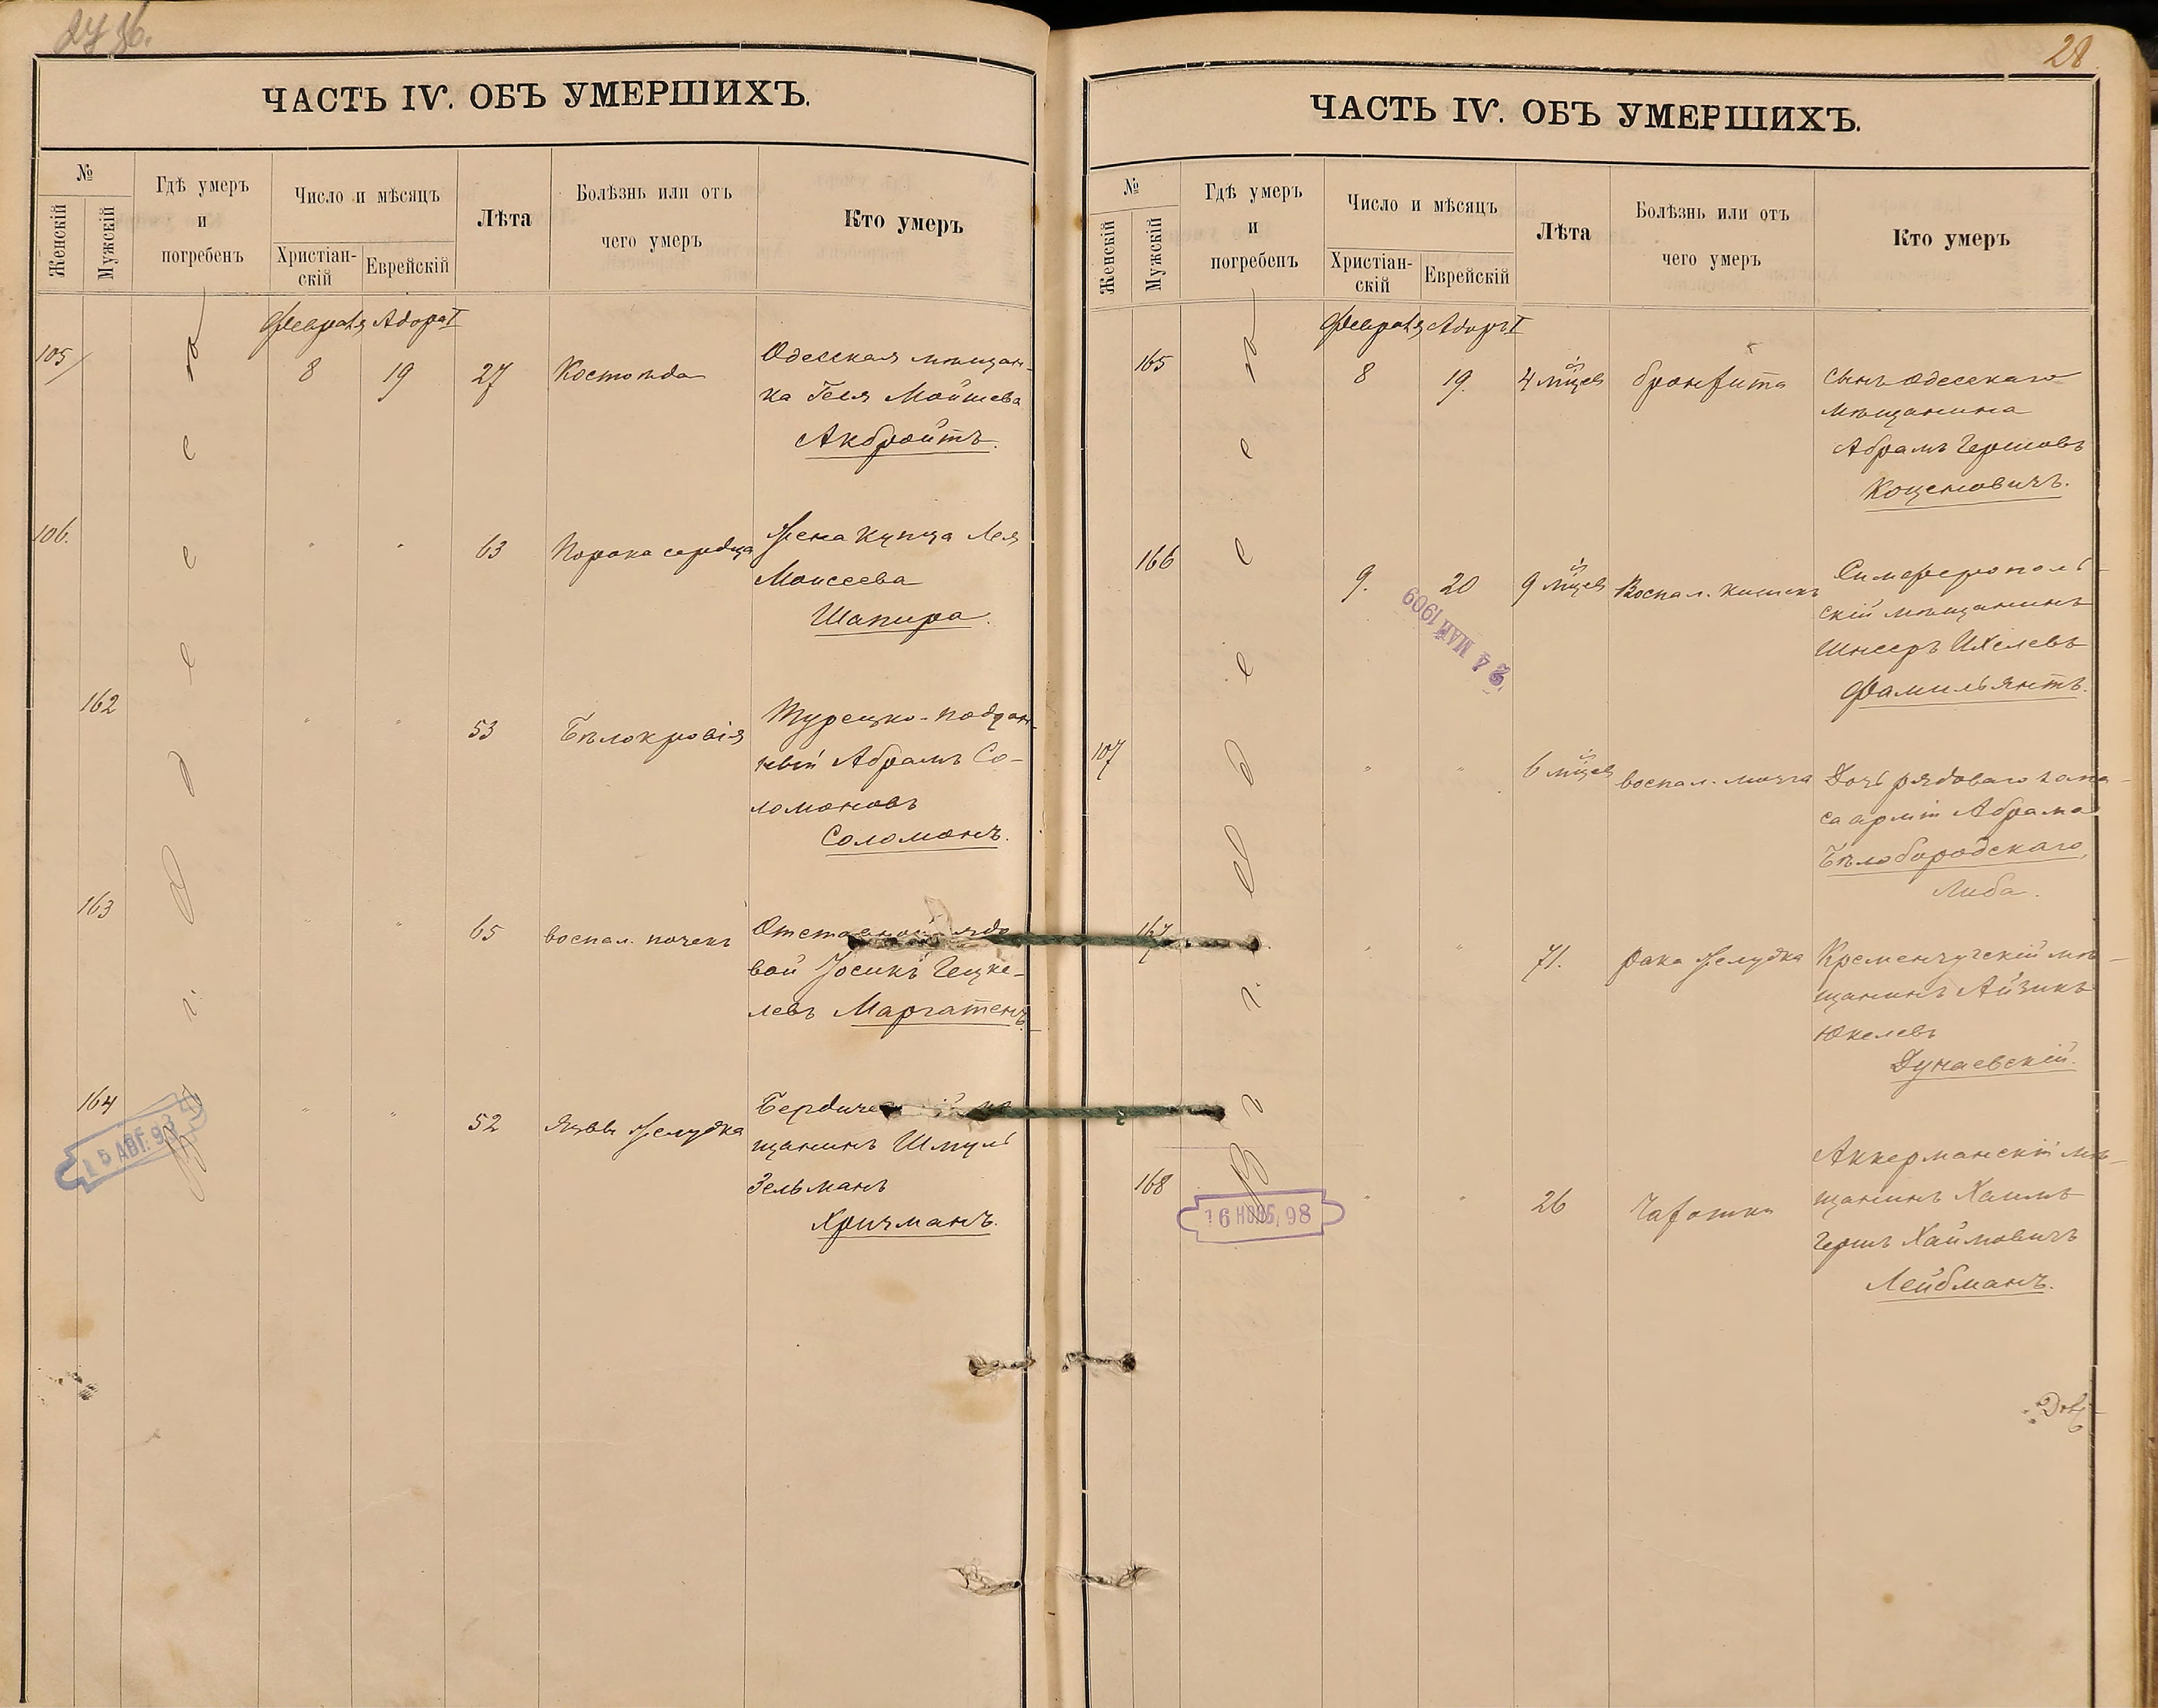 ЧАСТЬ IV. ОБЪ УМЕРШИХЪ.
№
Женскій
Мужскій
Гдѣ умеръ
и
погребенъ
Число и мѣсяцъ
Христіан-
скій
Еврейскій
Лѣта
Болѣзнь или отъ
чего умеръ
Кто умеръ
Февраля Адора I
105
8
19
27
Костоѣда
Одесская мѣщан-
ка Геля Мойшева
Акбройтъ.
106.
"
"
63
Порока сердца
Жена купца Лея
Моисеева
Шапира.
162
"
"
53
Бѣлокровія
Турецко-поддан-
ный Абрамъ Со-
ломоновъ
Соломонъ.
163
"
"
65
воспал. почекъ
вой Іосикъ Гецке-
левъ Маргатенъ.
164
"
"
52
Язвы желудка
щанинъ Шмуль
Зельманъ
Хричманъ.
15 АВГ. 93
28
ЧАСТЬ IV. ОБЪ УМЕРШИХЪ.
№
Женскій
Мужскій
Гдѣ умеръ
и
погребенъ
Число и мѣсяцъ
Христіан-
скій
Еврейскій
Лѣта
Болѣзнь или отъ
чего умеръ
Кто умеръ
Февраля Адора I
165
8
19.
4 мѣцев
бронхита
сынъ одесскаго
мѣщанина
Абрамъ Гершовъ
Коценовичъ.
166
9.
20
9 мѣцев
Воспал. кишекъ
Симферополь-
скій мѣщанинъ
Шнееръ Ихелевъ
Фамильянтъ.
24 МАЙ 1909
107
"
"
6 мѣцев
воспал. мозга
Дочь рядоваго запа-
са арміи Абрама
Бѣлобородскаго,
Либа.
167
"
"
71.
рака желудка
Кременчугскій мѣ-
щанинъ Айзикъ
Юкелевъ
Дунаевскій.
168
"
"
26
Чахотки
Аккерманскій мѣ-
щанинъ Хаимъ
Гершъ Хаймовичъ
Лейбманъ.
16 НОЯБ. 98